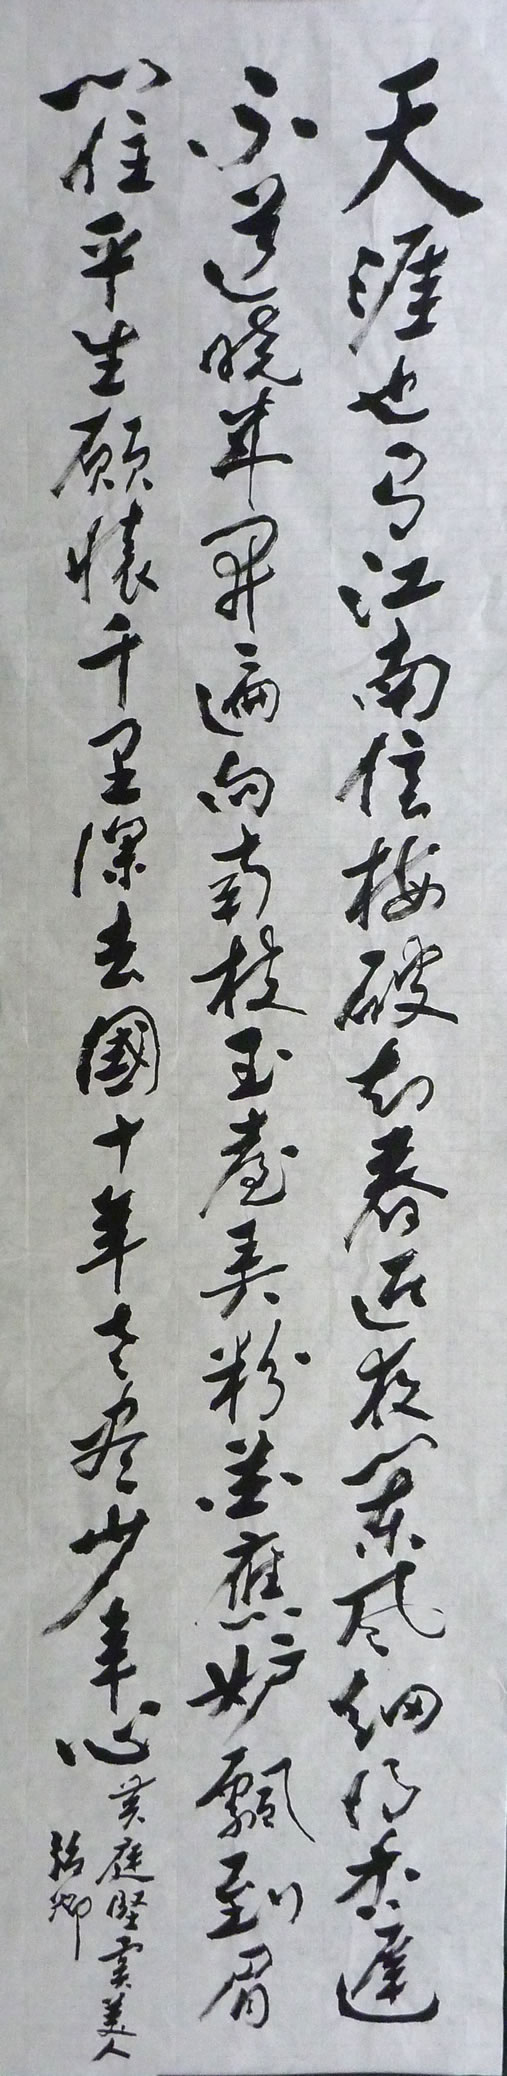 天涯也有江南信梅破知春近夜阑风细得香遲
不道晓来開遍向南枝玉臺弄粉花應妒飄到眉
心住平生願懷千里深去國十年老尽少年心
黄庭坚虞美人